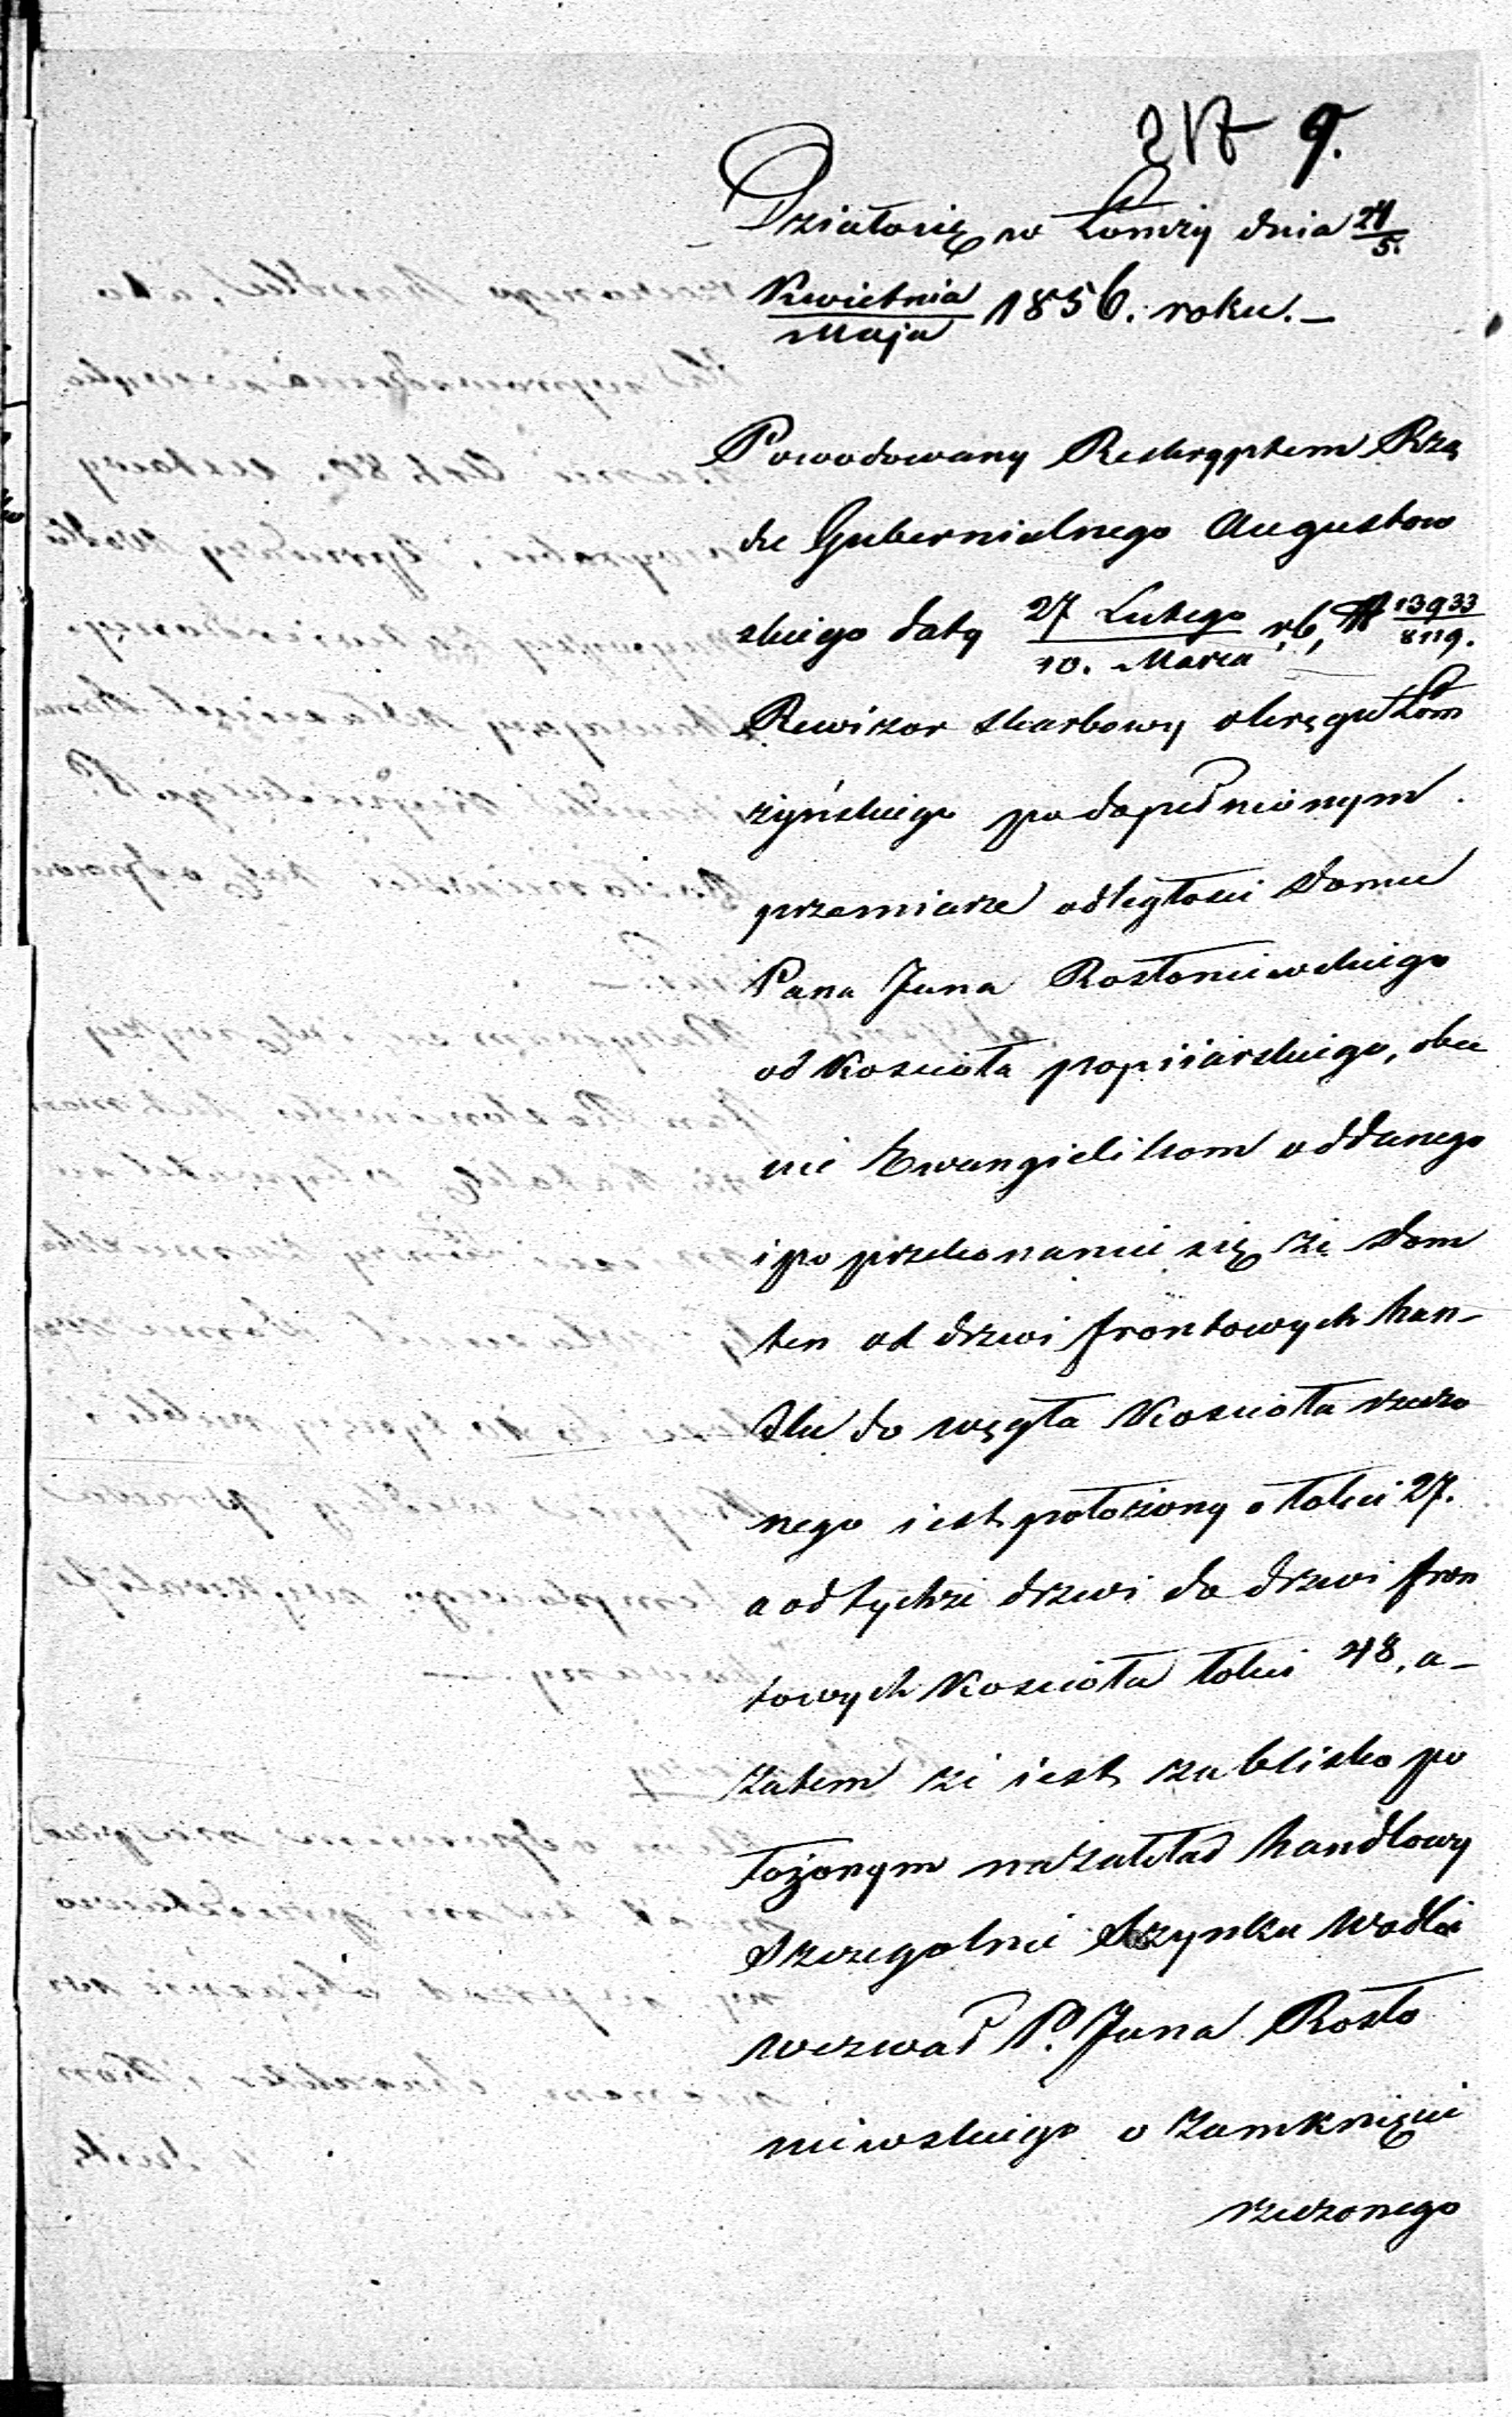 217 9.
Działosię w Łomży dnia 24/5.
Kwietnia/Maja 1856. roku. –
Powodowany Reskryptem Rzą
du Gubernialnego Augustow
skiego daty 27 Lutego/10. Marca r.b, N 13933/8119.
Rewizor Skarbowy okręgu Łom
żyńskiego po dopełnionym
przemiarze odległości Domu
Pana Jana Rostoniewskiego
od Kościoła popiiarskiego, obe
cnie Ewangielikom oddanego
i po przekonaniu się że Dom
ten od drzwi frontowych han–
dlu do węgła Kościoła rzeczo
nego iest położony o łokci 27.
a od tychże drzwi do drzwi fron
towych Kościoła łokci 48, a–
zatem że iest za blisko po
łożonym na zakład handlowy
Szczegolnie Szynku Wodki
wezwał P. Jana Rosto
niewskiego o zamknięcie
rzeczonego